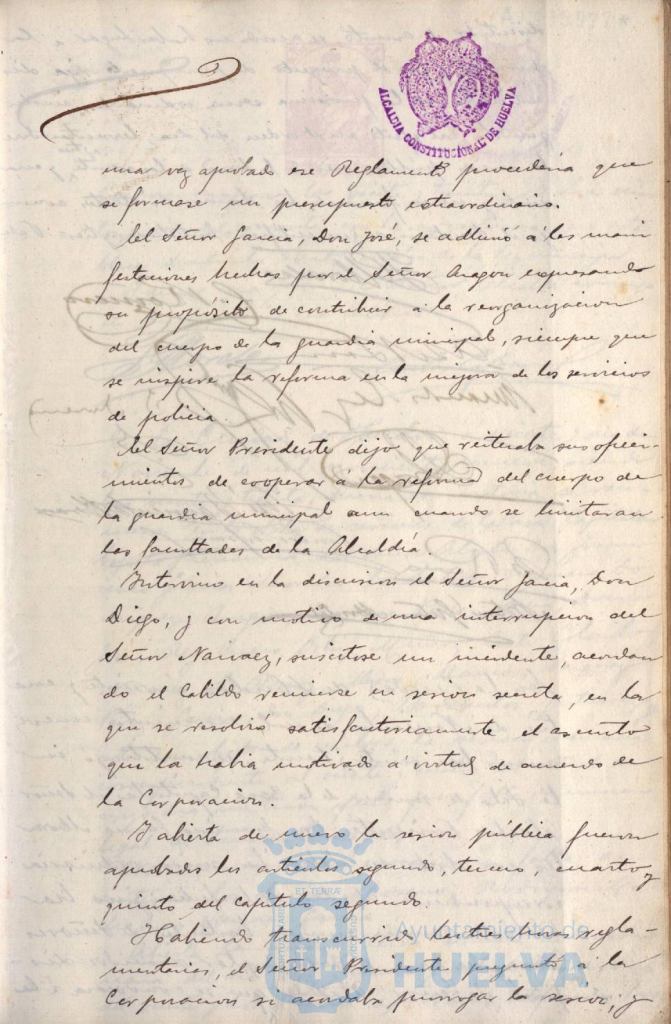 ALCALDIA CONSTITUCIONAL DE HUELVA
una vez aprobado ese Reglamento procederia que
se formase un presupuesto extraordinario.
El Señor Garcia, Don José, se adhirió á las mani
festaciones hechas por el Señor Aragon expresando
su propósito de contribuir á la reorganizacion
del cuerpo de la guardia municipal, siempre que
se inspire la reforma en la mejora de los servicios
de policia.
El Señor Presidente dijo que reiteraba sus ofreci-
mientos de cooperar á la reforma del cuerpo de
la guardia municipal aun cuando se limitaran
las facultades de la Alcaldía.
Intervino en la discusion el Señor Garcia, Don
Diego, y con motivo de una interrupcion del
Señor Narvaez, suscitose un incidente, acordan
do el Cabildo reunirse en sesion secreta, en la
que se resolvió satisfactoriamente el asunto
que la habia motivado á virtud de acuerdo de
la Corporacion.
Y abierta de nuevo la sesion pública fueron
aprobados los artículos segundo, tercero, cuarto y
quinto del capítulo segundo.
Habiendo transcurrido las tres horas regla-
mentarias, el Señor Presidente preguntó á la
Corporacion si acordaba prorrogar la sesion; y
Ayuntamiento de
HUELVA